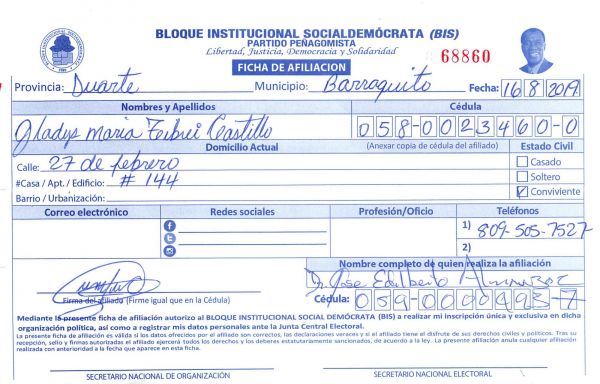 BLOQUE INSTITUCIONAL SOCIALDEMÓCRATA (BIS)
PARTIDO PEÑAGOMISTA
Libertad, Justicia, Democracia y Solidaridad
68860
FICHA DE AFILIACION
Provincia: Duarte Municipio: Barraquito Fecha: 16 8 2019
Nombres y Apellidos Cédula
Gladys Maria Castillo 058-0023460-0
Domicilio Actual (Anexar copia de cédula del afiliado) Estado Civil
Calle: 27 de febrero Casado
#Casa / Apt. / Edificio: # 144 Soltero
Barrio / Urbanización: Conviviente
Correo electrónico Redes sociales Profesión/Oficio Teléfonos
1) 809-505-7527
2)
Nombre completo de quien realiza la afiliación
Dr. Jose Edilberto
Firma del afiliado (Firme igual que en la Cédula) Cédula: 059-0000493-7
Mediante la presente ficha de afiliación autorizo al BLOQUE INSTITUCIONAL SOCIAL DEMÓCRATA (BIS) a realizar mi inscripción única y exclusiva en dicha
organización política, así como a registrar mis datos personales ante la Junta Central Electoral.
La presente ficha de afiliación es válida y los datos ofrecidos por el afiliado son correctos, las declaraciones veraces y si el afiliado tiene el disfrute de sus derechos civiles y políticos. Tras su
recepción, sello y firmas autorizadas el afiliado ejercerá todos los derechos y los deberes estatutariamente sancionados, de acuerdo a la ley. La presente afiliación anula cualquier afiliación
realizada con anterioridad a la fecha que aparece en esta ficha.
SECRETARIO NACIONAL DE ORGANIZACIÓN SECRETARIO NACIONAL ELECTORAL